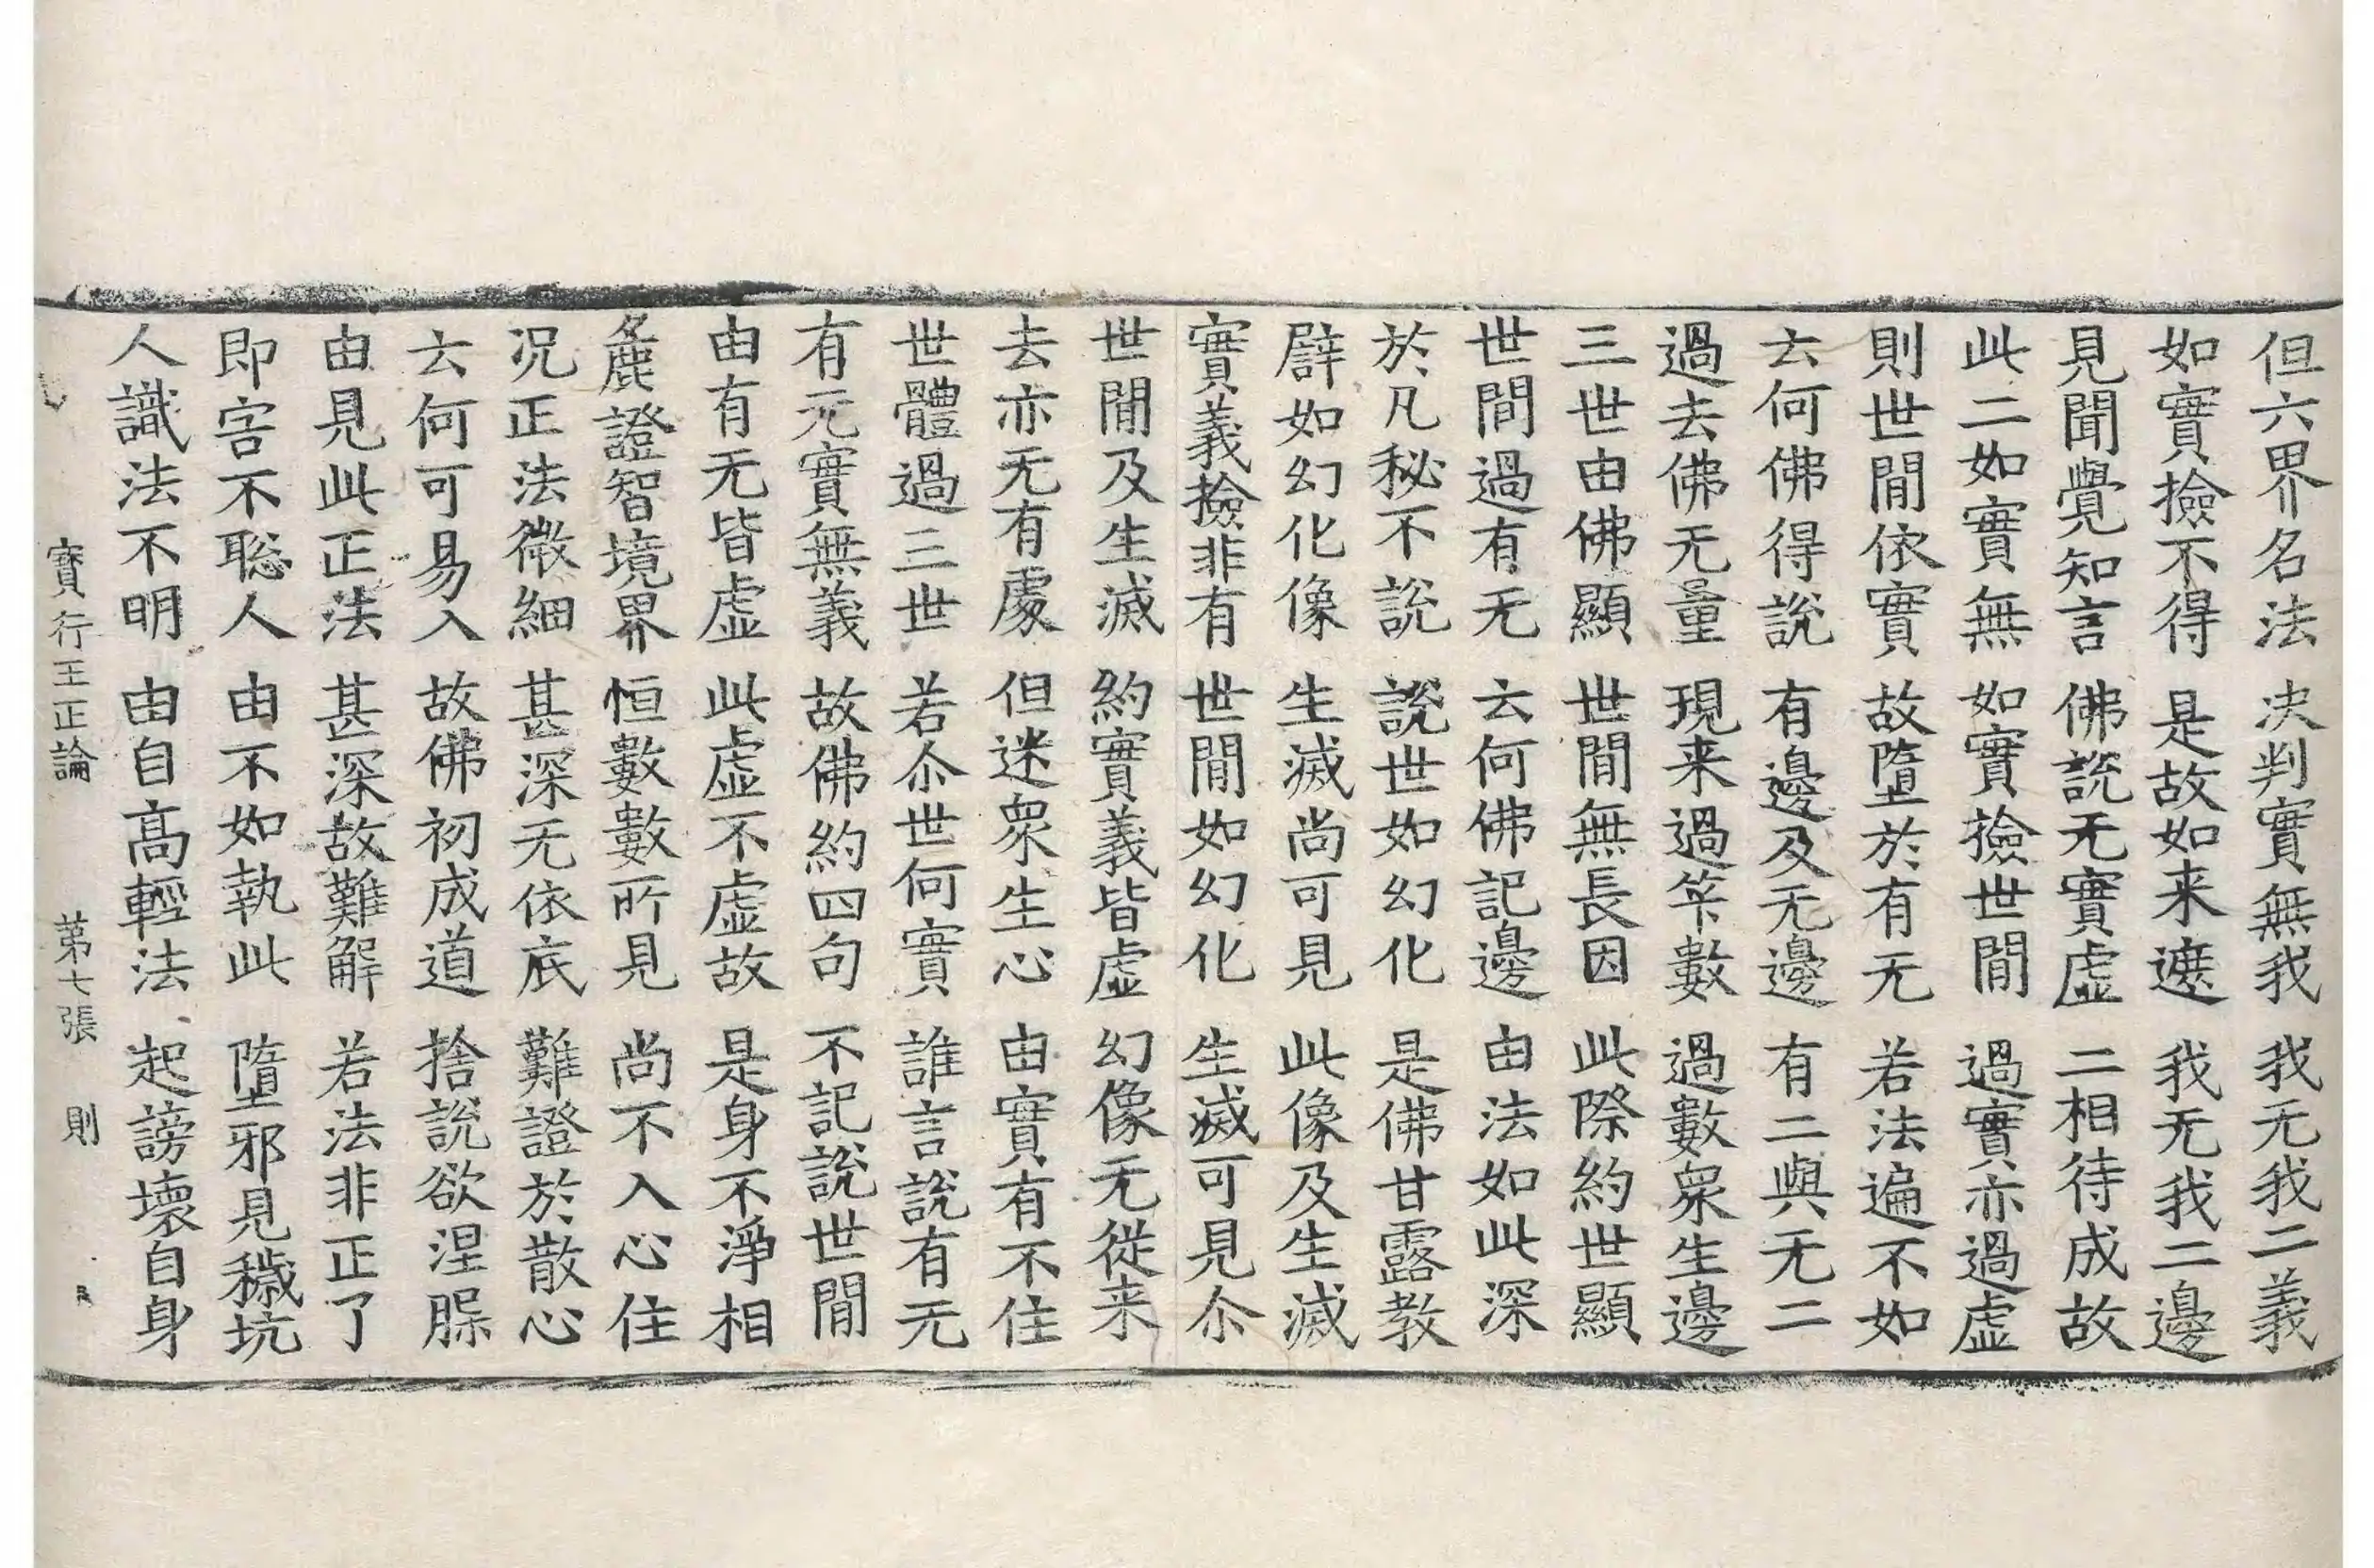 但六界名法　決判實無我　我无我二義
如實撿不得　是故如来遮　我无我二邊
見聞覺知言　佛說无實虛　二相待成故
此二如實無　如實撿世間　過實亦過虛
則世間依實　故墮於有无　若法遍不如
云何佛得說　有邊及无邊　有二與无二
過去佛无量　現来過筭數　過數衆生邊
三世由佛顯　世間無長因　此際約世顯
世間過有无　云何佛記邊　由法如此深
於凡秘不說　說世如幻化　是佛甘露教
譬如幻化像　生滅尚可見　此像及生滅
實義撿非有　世間如幻化　生滅可見尒
世間及生滅　約實義皆虛　幻像无從来
去亦无有處　但迷衆生心　由實有不住
世體過三世　若尒世何實　誰言說有无
有无實無義　故佛約四句　不記說世間
由有无皆虛　此虛不虛故　是身不淨相
麁證智境界　恒數數所見　尚不入心住
況正法微細　甚深无依底　難證於散心
云何可易入　故佛初成道　捨說欲涅槃
由見此正法　甚深故難解　若法非正了
即害不聡人　由不如執此　墮邪見穢坑
人識法不明　由自高輕法　起謗壞自身
寳行王正論　第七張　則